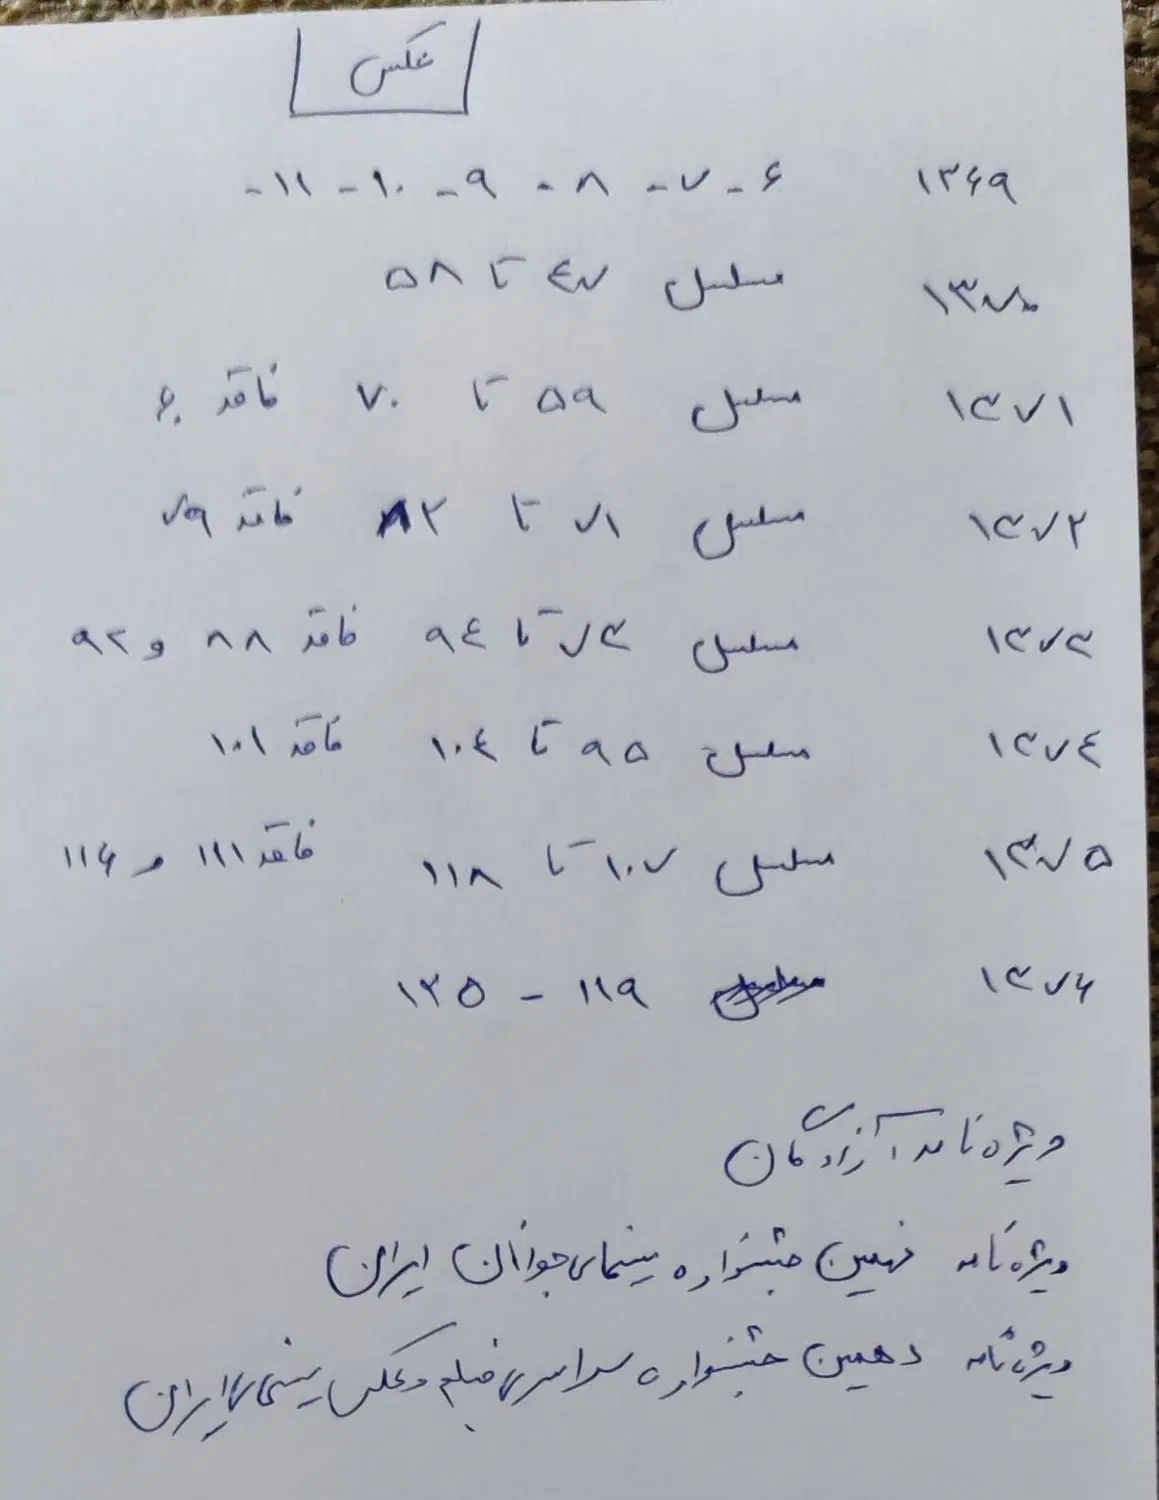 عکس
۱۳۶۹ ۶ - ۷ - ۸ - ۹ - ۱۰ - ۱۱ -
۱۳۷۰ مسلسل ۴۷ تا ۵۸
۱۳۷۱ مسلسل ۵۹ تا ۷۰ فاقد ۶۰
۱۳۷۲ مسلسل ۷۱ تا ۸۲ فاقد ۷۹
۱۳۷۳ مسلسل ۷۳ تا ۹۴ فاقد ۸۸ و ۹۲
۱۳۷۴ مسلسل ۹۵ تا ۱۰۴ فاقد ۱۰۱
۱۳۷۵ مسلسل ۱۰۷ تا ۱۱۸ فاقد ۱۱۱ و ۱۱۶
۱۳۷۶ ۱۱۹ - ۱۲۵
ویژه نامه آزادگان
ویژه نامه نهمین جشنواره سینمای جوانان ایران
ویژه نامه دهمین جشنواره سراسری فیلم و عکس سینمای ایران